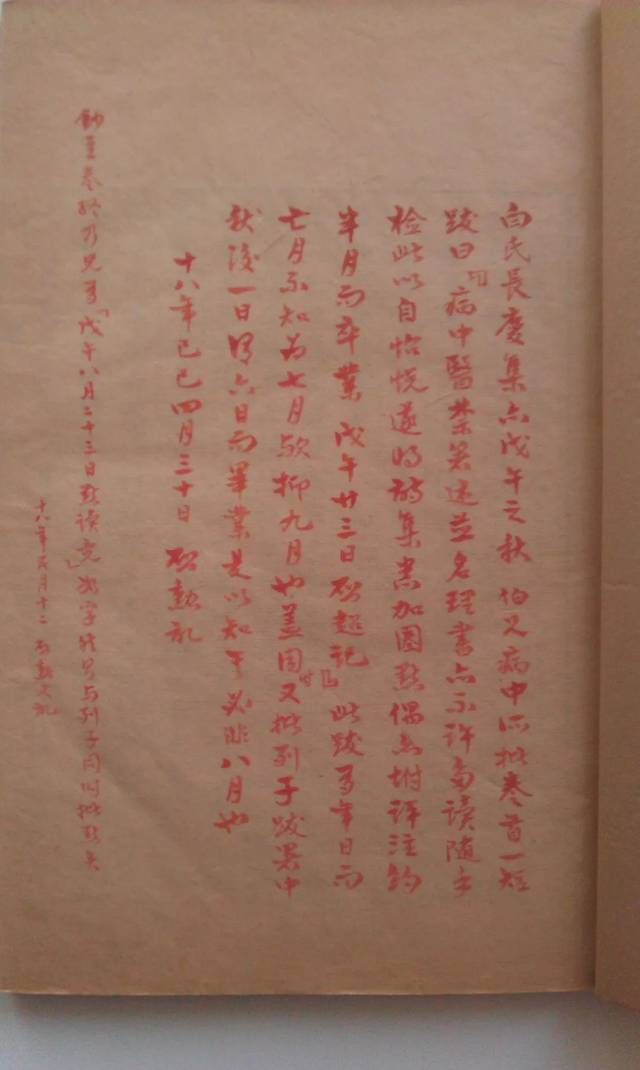 白氏長慶集亦戊午之秋 伯父病中所批卷首一短
跋曰「病中醫禁著述並名理書亦不許多讀隨手
檢此以自怡悅遂將詩集悉加圈點偶亦坿評注約
半月而卒業 戊午廿三日 啟超記」此跋有年日而
七月不知為七月歟抑九月也蓋同時又批列子跋畧中
秋後一日 六日而畢業是以知 必非八月也
十八年己巳四月三十日 啟勳記
勘至卷終乃見有「戊午八月二十三日點讀竟」 字 與列子同時批點矣
十八年 月十二 啟勳又記